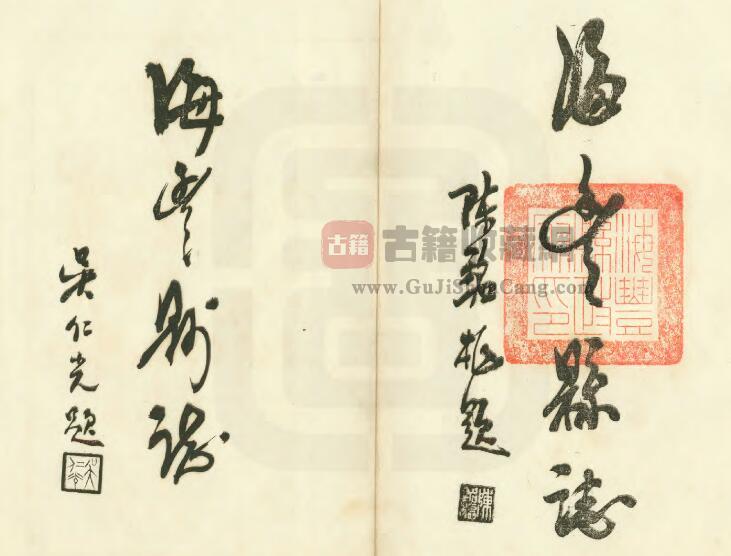 海豐縣誌
陈題
海豐縣誌
吴仁光題
古籍
古籍收藏網
www.GuJiShouCang.com